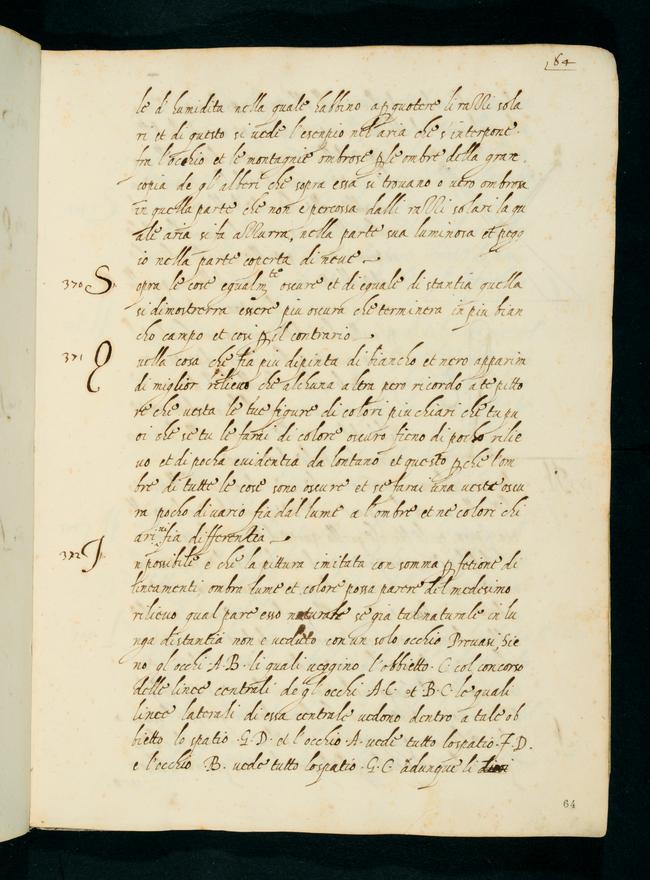 64
le d'humidita nella quale habbino a pquotere li razzi sola
ri et di questo si uede l'esenpio nel'aria che s'interpone
fra l'occhio et le montagnie ombrose p le ombre della gran
copia de gl'alberi che sopra essa si trouano o uero ombrosa
in quella parte che non e percossa dalli razzi solari la qu
ale aria si fa azzurra, nella parte sua luminosa et pegg
io nella parte coperta di neue
370 Sopra le cose egualmte oscure et di eguale di stantia quella
si dimosterra essere piu oscura che terminera in piu bian
cho campo et cosi p il contrario
371 Quella cosa che fia piu dipinta di biancho et nero apparira
di miglior rilieuo che alchuna altra pero ricordo a te pitto
re che uesta le tue figure di colori piu chiari che tu pu
oi che se tu le farai di colore oscuro fieno di pocho rilie
uo et di pocha euidentia da lontano et questo p che l'om
bre di tutte le cose sono oscure et se farai una ueste oscu
ra pocho diuario fia dal lume a l'ombre et ne colori chi
ari ui fia differentia
372 Inpossibile e che la pittura imitata con somma pfetione di
lineamenti ombra lume et colore possa parere del medesimo
rilieuo qual pare esso naturale se gia tal naturale in lu
nga distantia non e ueduto con un solo occhio Prouasi, Sie
no gl'occhi A.B. li quali ueggino l'obbietto. C. col concorso
delle linee centrali de gl'occhi A.C. et B.C. le quali
linee laterali di essa centrale uedono dentro a tale ob
bietto lo spatio .G.D. et l'occhio A. uede tutto lo spatio .F.D.
e l'occhio .B. uede tutto lo spatio .G.C. adunque li
64